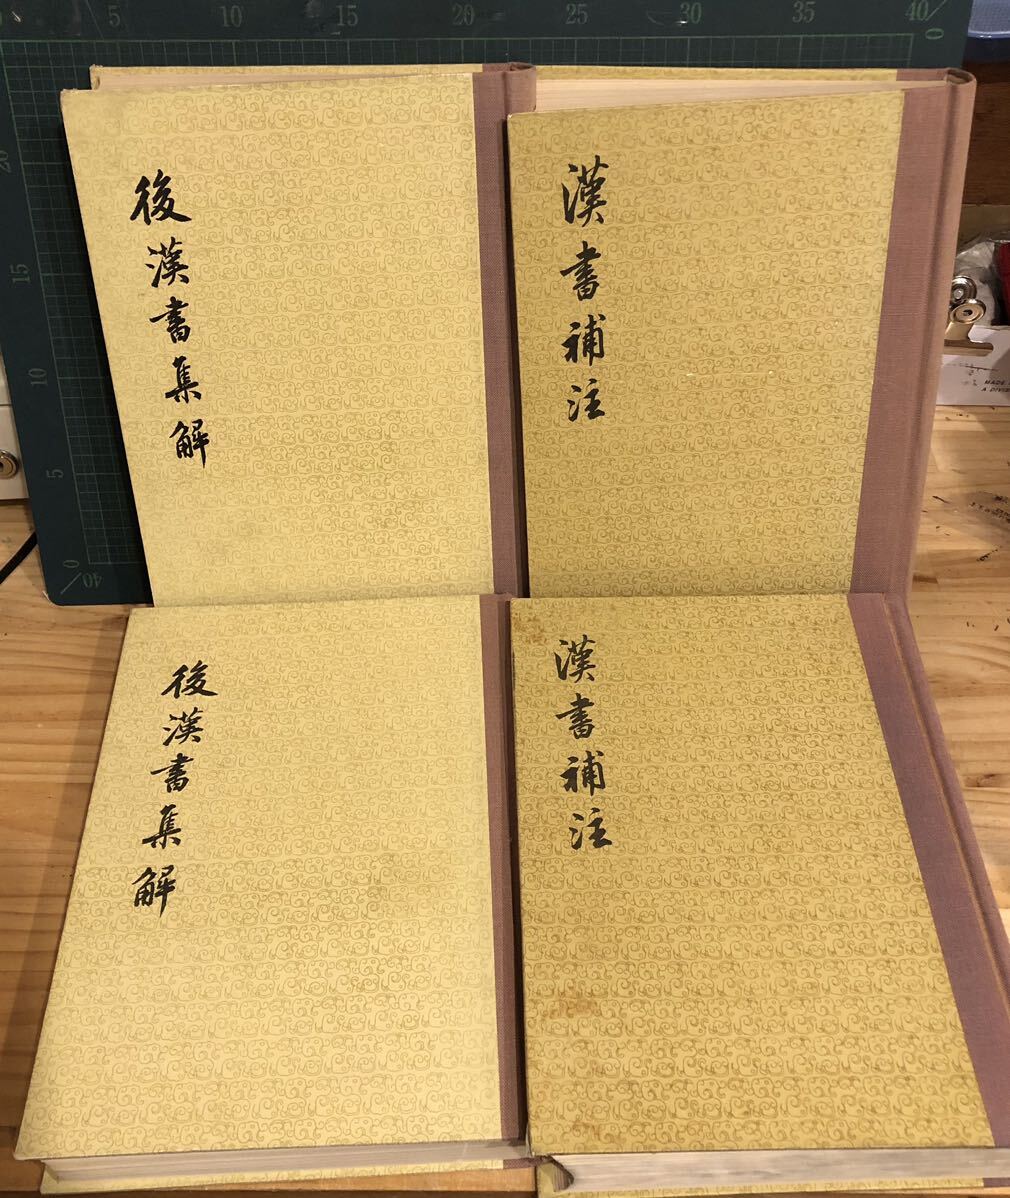 5 10 15 20 25 30 35 40
0
20
15
10
5
0
40
後漢書集解
漢書補注
後漢書集解
漢書補注
MADE
A DIVIS